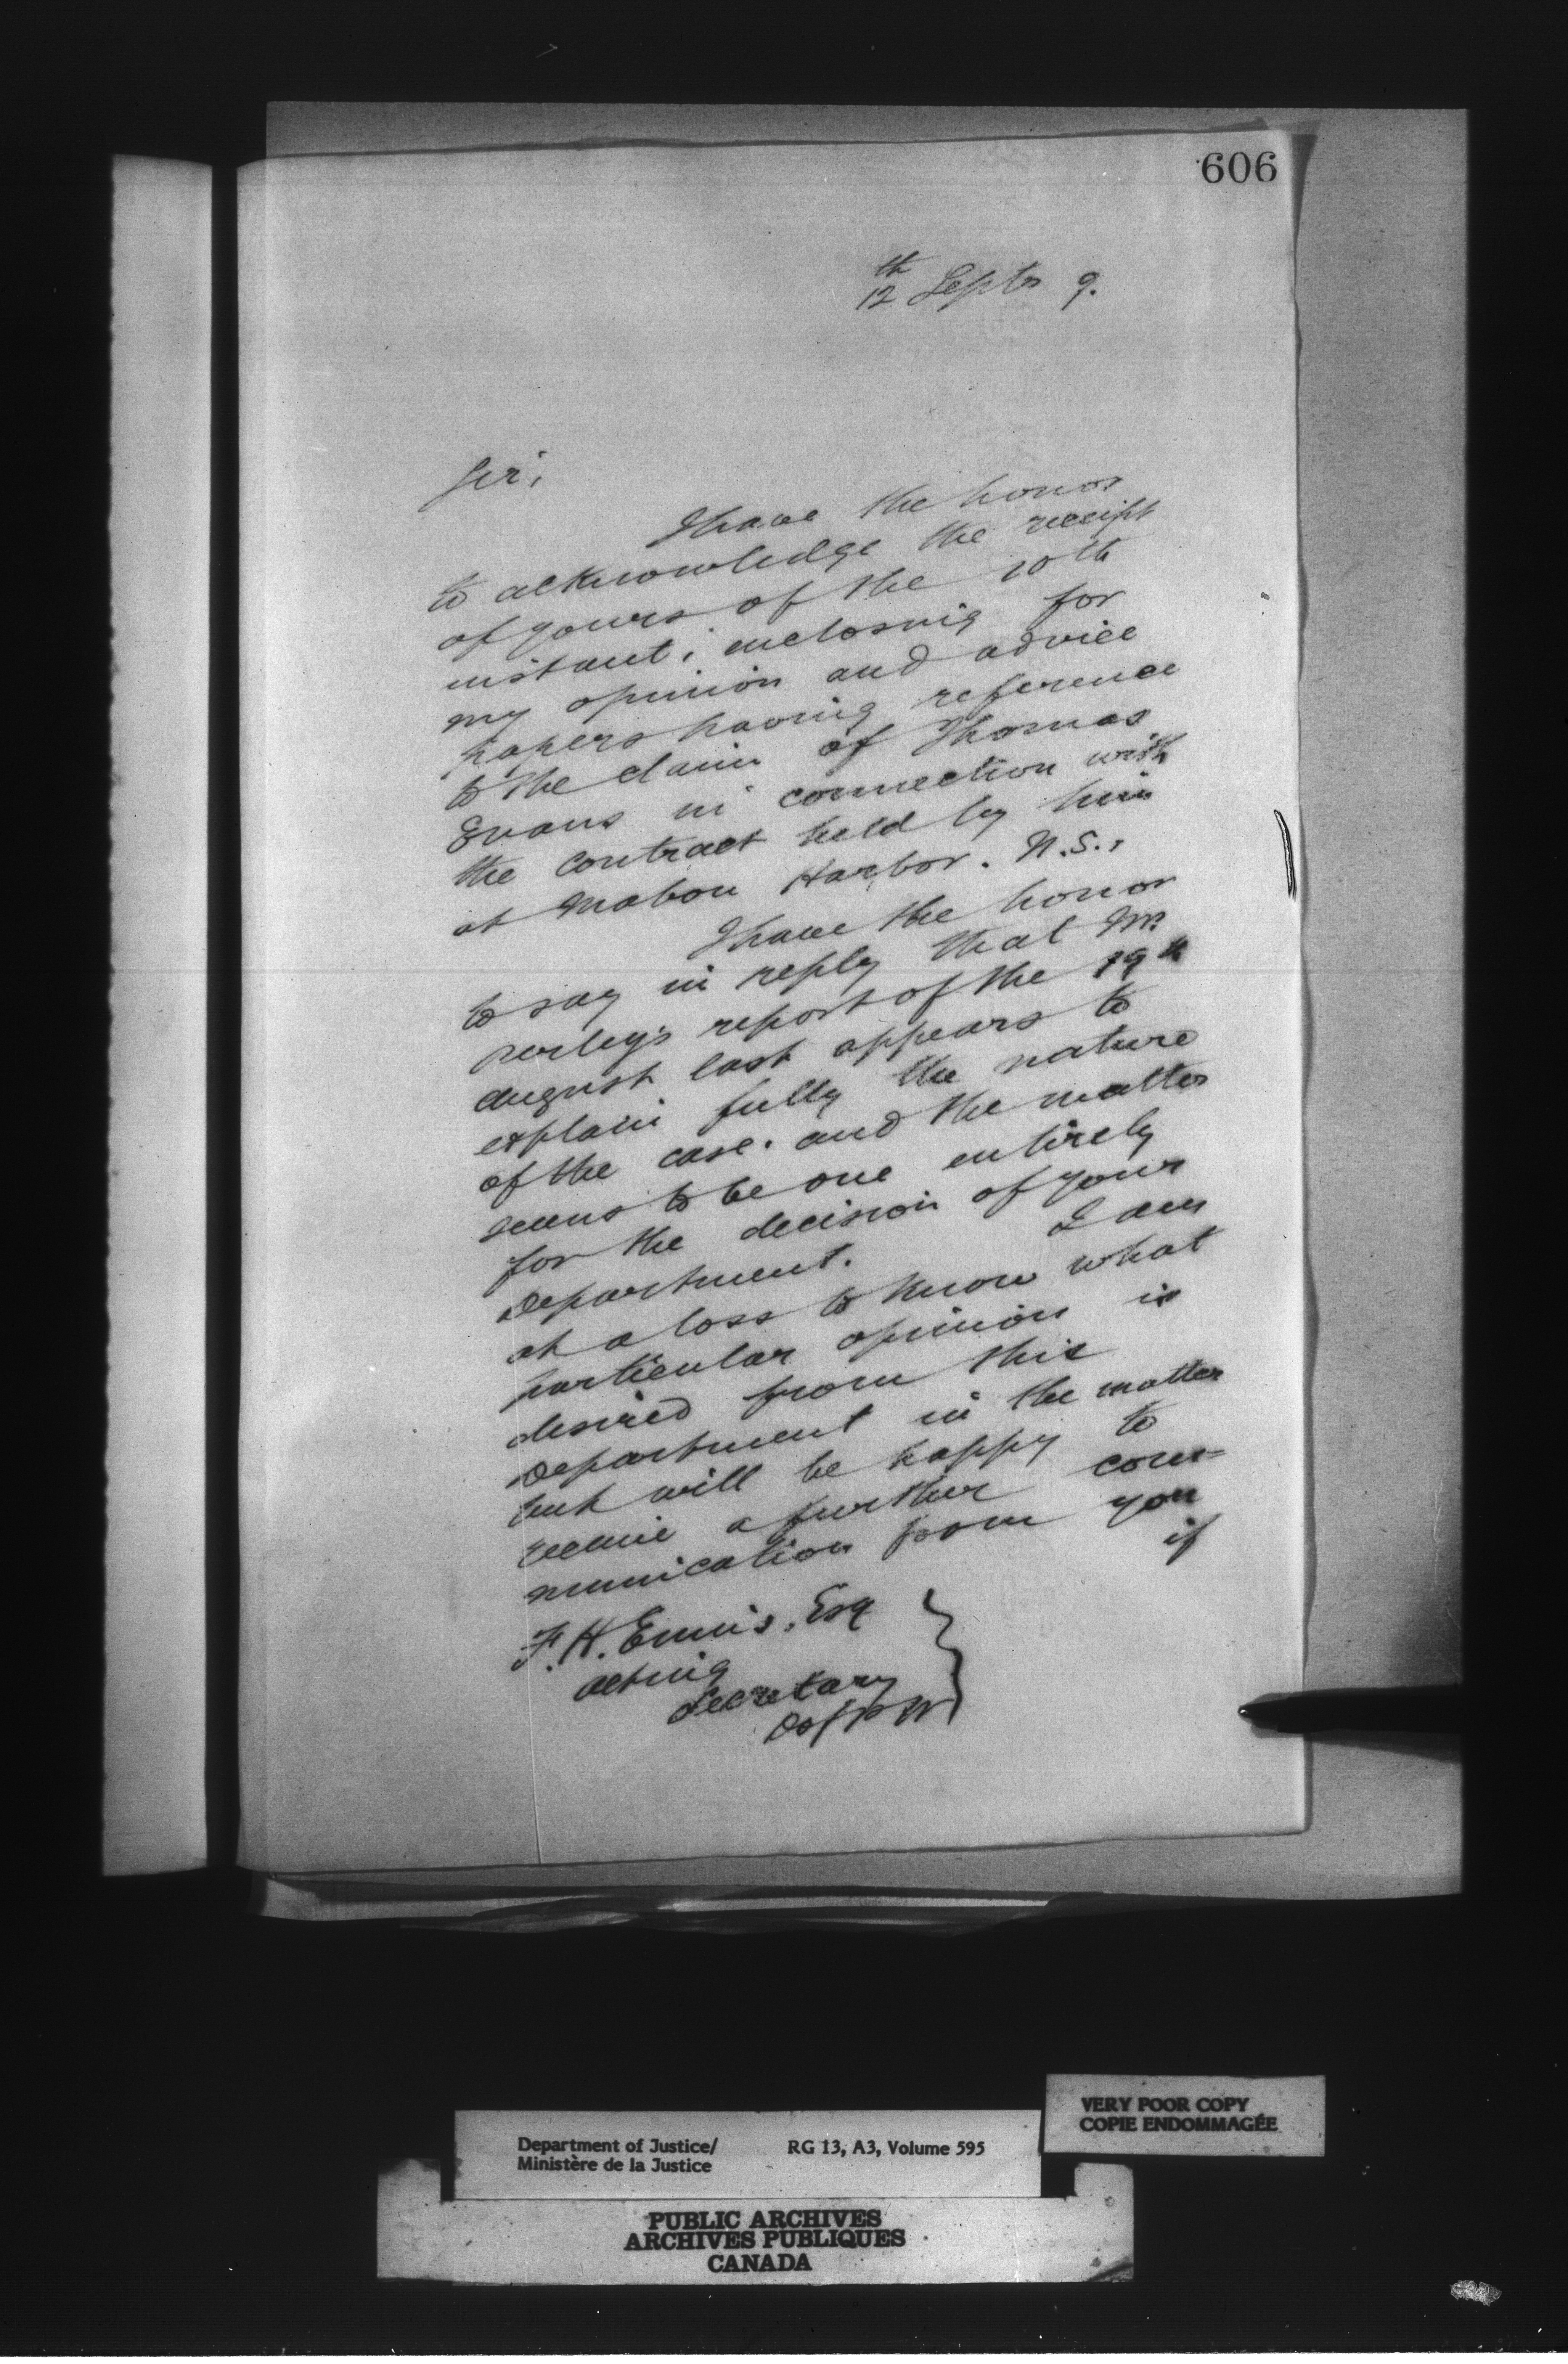 606
12th Septr 9.
Sir,
I have the honor
to acknowledge the receipt
of yours of the 10th
instant, enclosing for
my opinion and advice
papers having reference
to the claim of Thomas
Evans in connection with
the contract held by him
at Mabou Harbor. N.S.,
I have the honor
to say in reply that Mr.
Perley's report of the 19th
August last appears to
explain fully the nature
of the case. and the matter
seems to be one entirely
for the decision of your
Department. I am
at a loss to know what
particular opinion is
desired from this
Department in the matter
but will be happy to
receive a further com-
munication from you
if
F. H. Ennis, Esq
Acting
Secretary
D of P W
VERY POOR COPY
COPIE ENDOMMAGÉE
Department of Justice/ RG 13, A3, Volume 595
Ministère de la Justice
PUBLIC ARCHIVES
ARCHIVES PUBLIQUES
CANADA